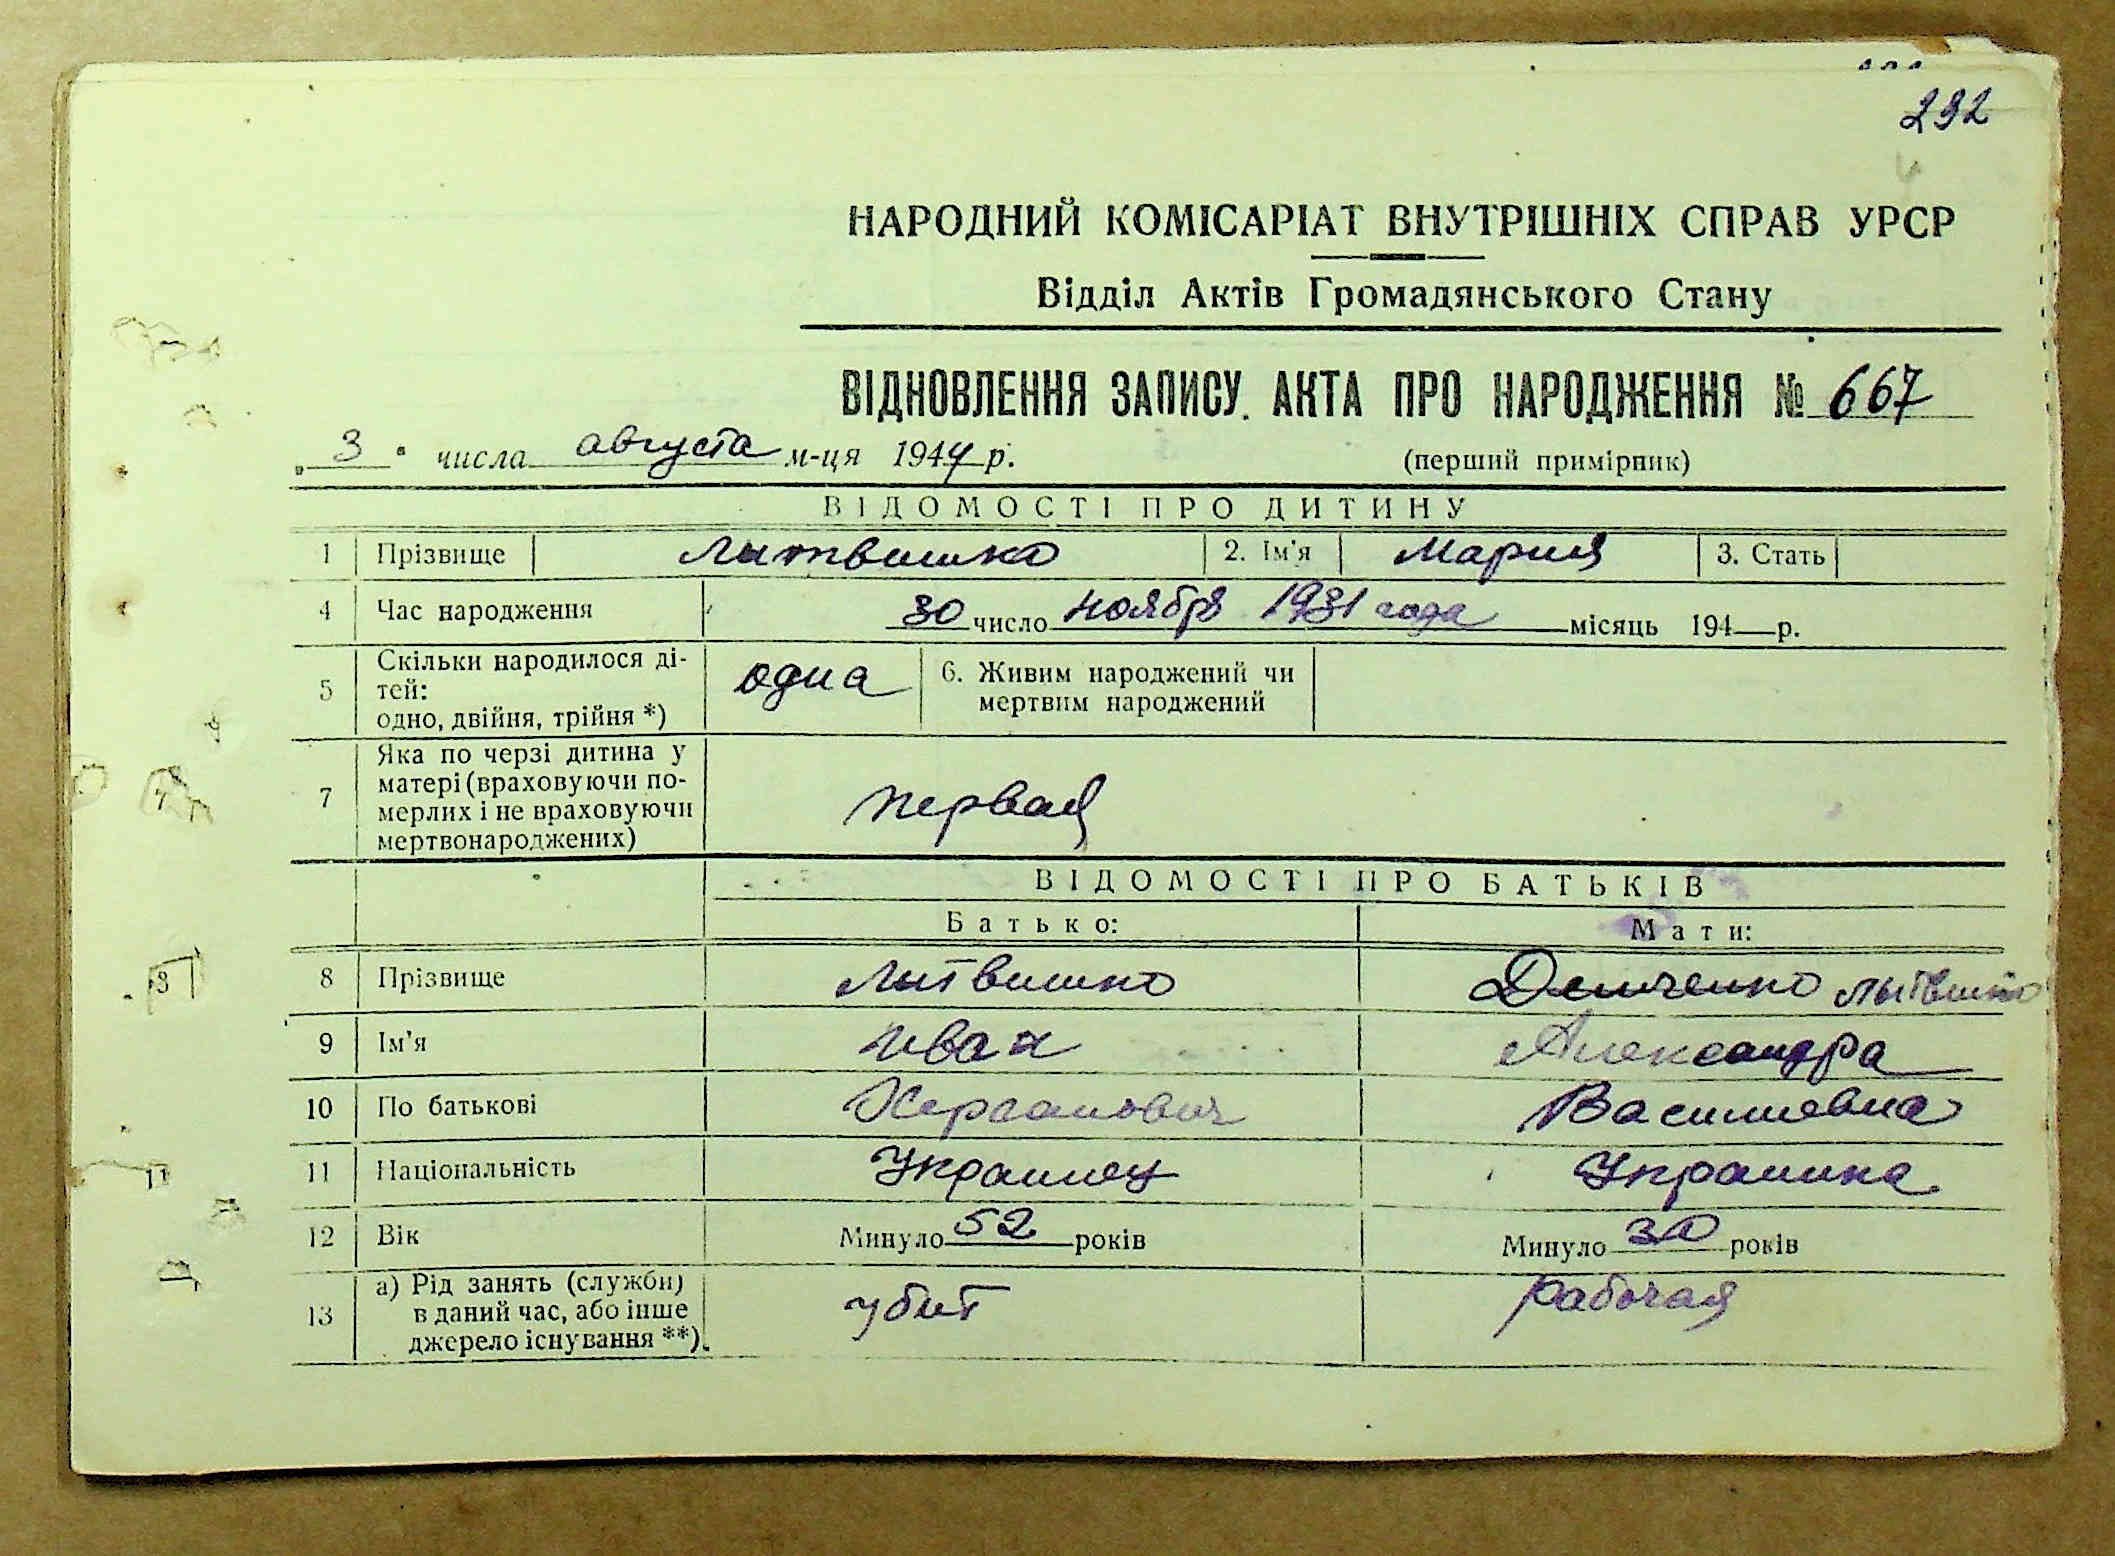 292
НАРОДНИЙ КОМІСАРІАТ ВНУТРІШНІХ СПРАВ УРСР
Відділ Актів Громадянського Стану
ВІДНОВЛЕННЯ ЗАПИСУ АКТА ПРО НАРОДЖЕННЯ № 667
„3“ числа августа м-ця 1944 р. (перший примірник)
ВІДОМОСТІ ПРО ДИТИНУ
1 Прізвище Литвишко 2. Ім'я Мария 3. Стать
4 Час народження 30 число ноября 1931 года місяць 194 р.
5 Скільки народилося ді-
тей:
одно, двійня, трійня *) одна 6. Живим народжений чи
мертвим народжений
7 Яка по черзі дитина у
матері (враховуючи по-
мерлих і не враховуючи
мертвонароджених) первая
ВІДОМОСТІ ПРО БАТЬКІВ
Батько: Мати:
8 Прізвище Литвишко Демченко Литвишко
9 Ім'я Иван Александра
10 По батькові Василиевна
11 Національність Украинец Украинка
12 Вік Минуло 52 років Минуло 30 років
13 а) Рід занять (служби)
в даний час, або інше
джерело існування **). убит рабочая